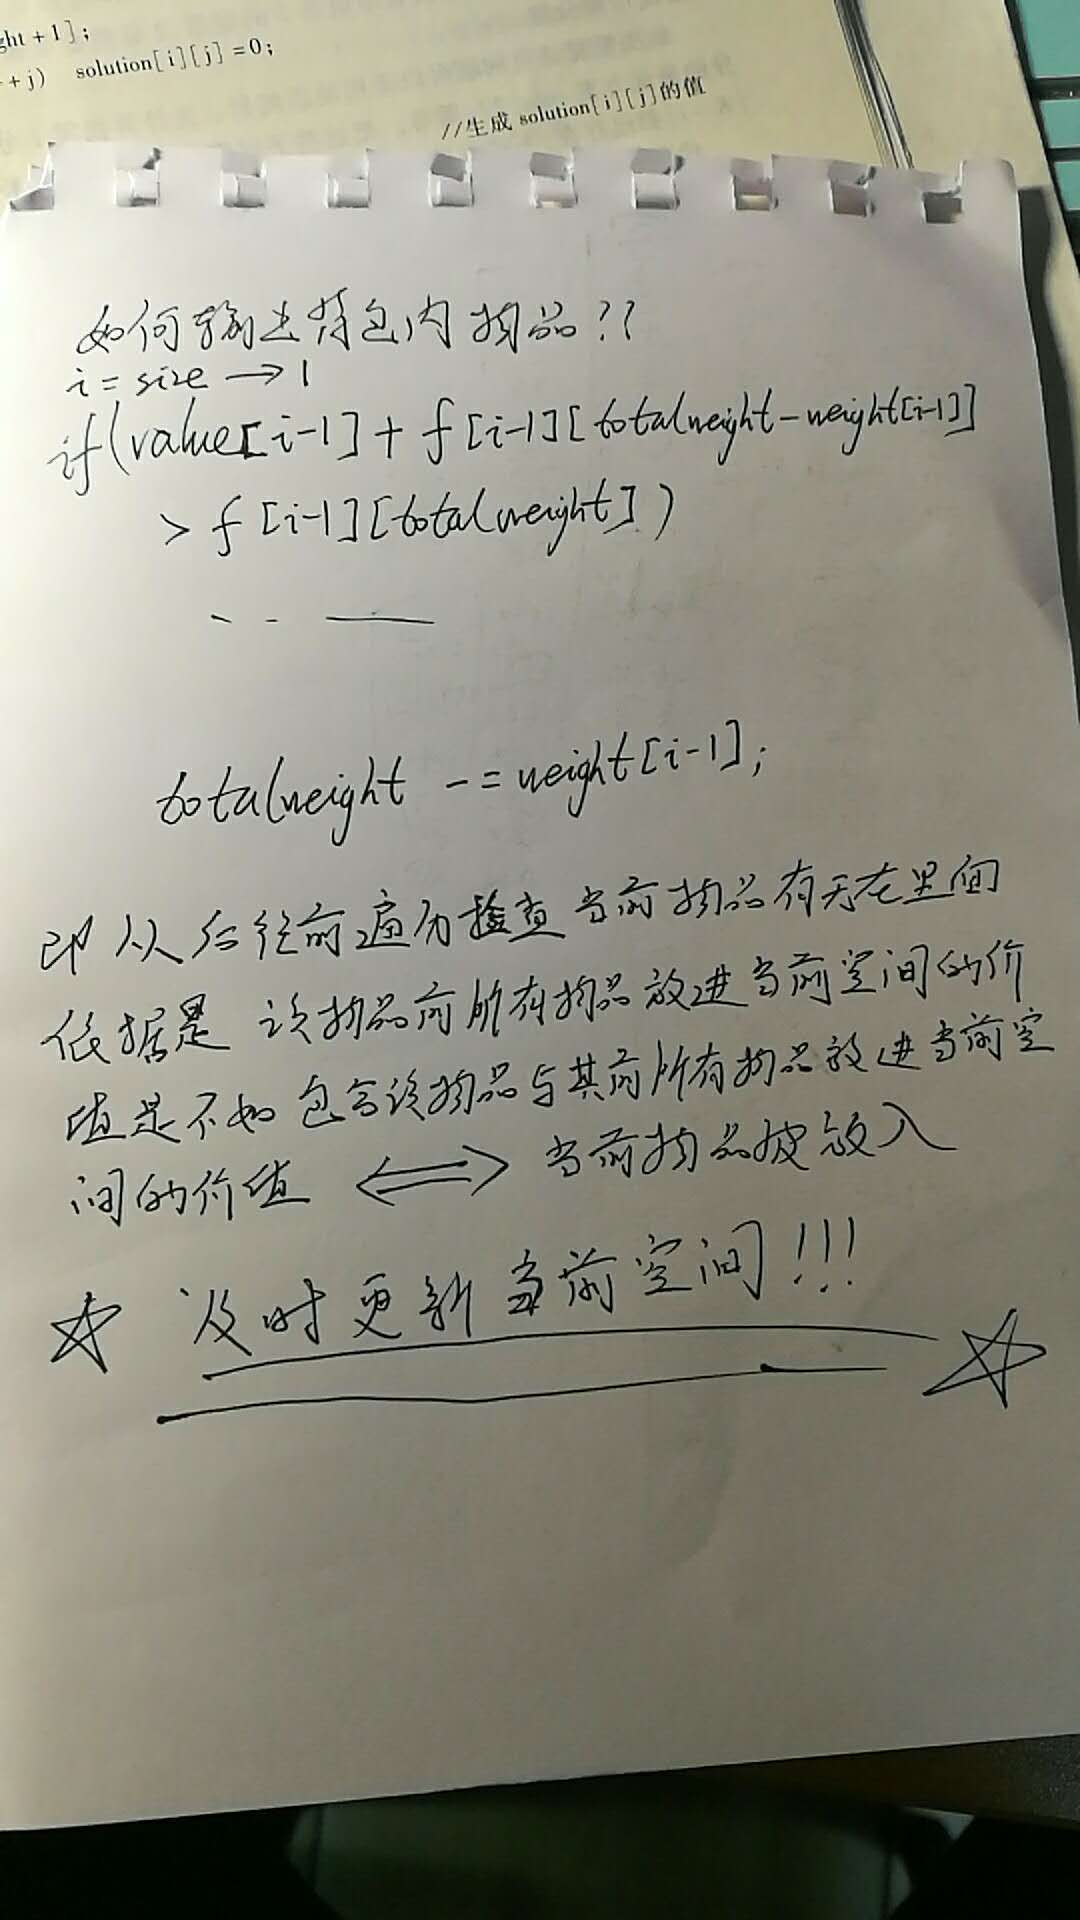 ght + 1];
+ j) solution[i][j] = 0;
//生成 solution[i][j]的值
如何输出背包内物品??
i = size → 1
if(value[i-1] + f[i-1][totalweight-weight[i-1]]
> f[i-1][totalweight])
totalweight -= weight[i-1];
即从后往前遍历检查当前物品有无在里面
依据是 该物品前所有物品放进当前空间的价
值是不如包含该物品与其前所有物品放进当前空
间的价值 ⟺ 当前物品被放入
☆ 及时更新当前空间!!! ☆